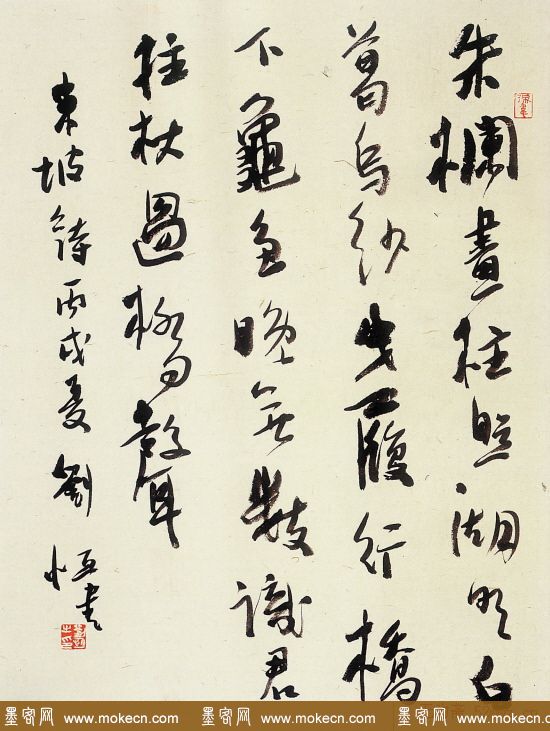 朱欄畫柱照湖明白
葛烏紗曳履行橋
下龜魚晚無數識君
拄杖過橋聲
東坡詩丙戌夏劉恒書
墨客网 www.mokecn.com 墨客网 www.mokecn.com 墨客网 www.mokecn.com